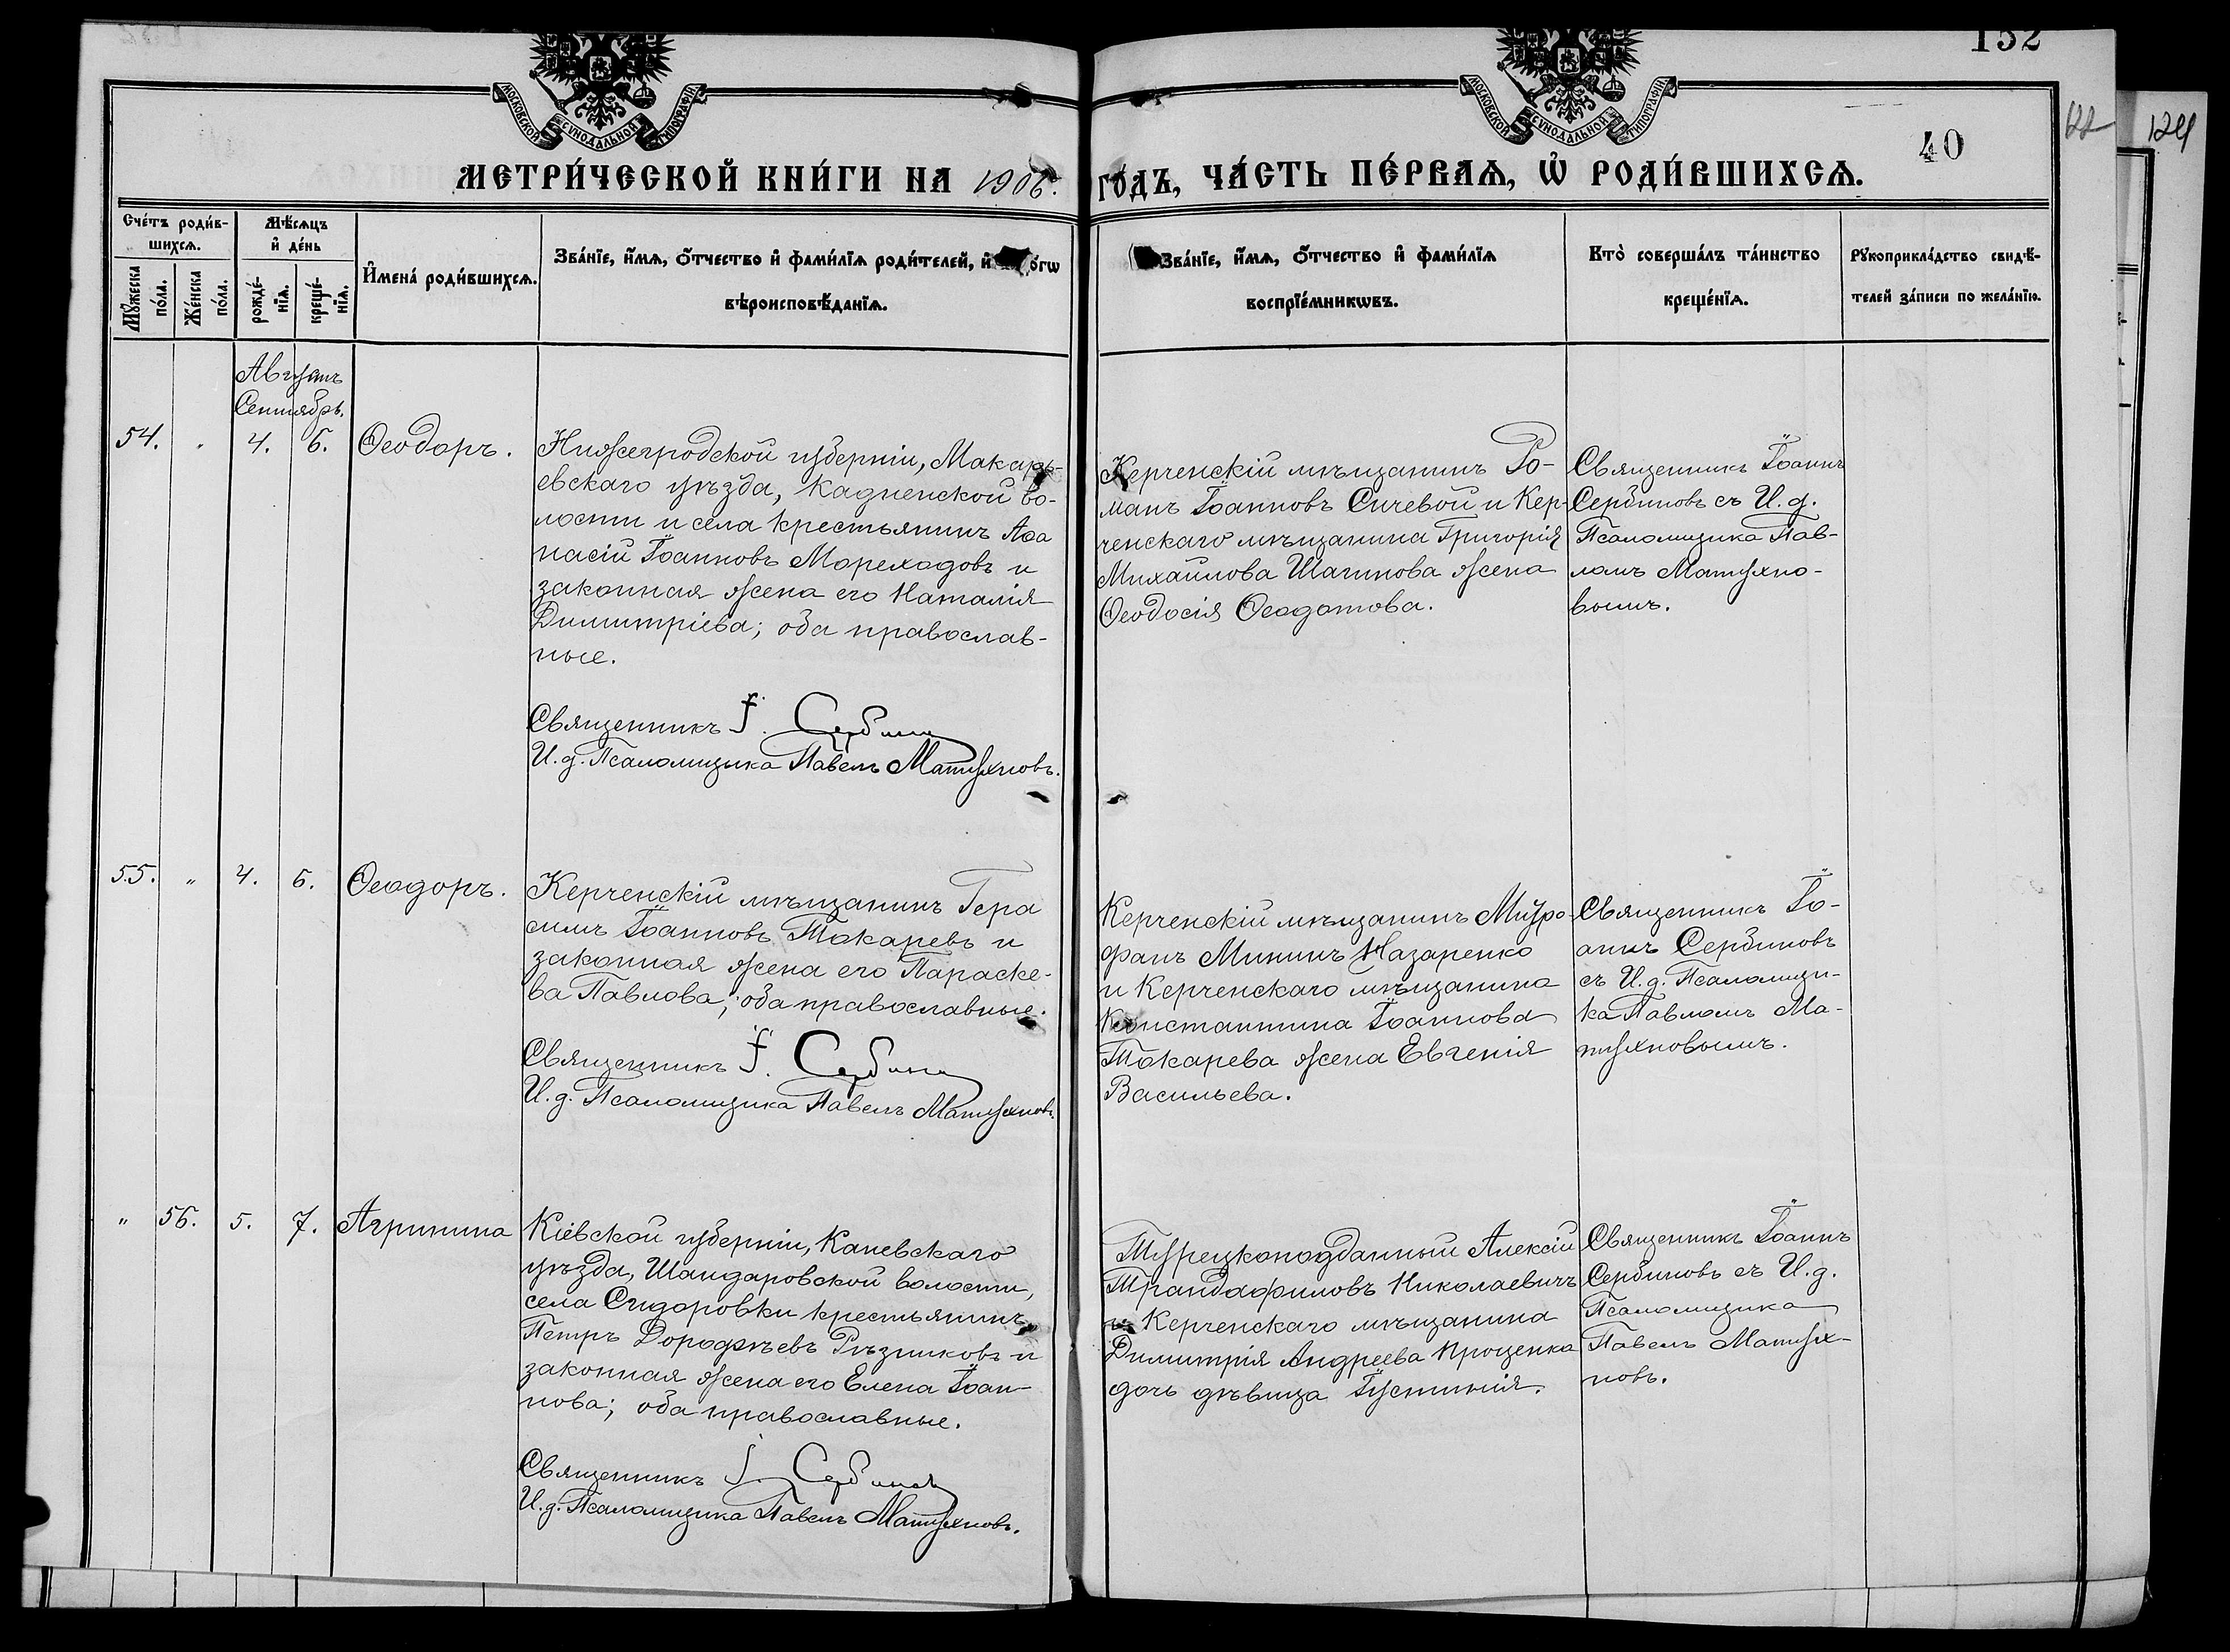 152
МОСКОВСКОЙ СУНОДАЛЬНОЙ ТИПОГРАФІИ
МОСКОВСКОЙ СУНОДАЛЬНОЙ ТИПОГРАФІИ
40
122
124
МЕТРИ́ЧЕСКОЙ КНИ́ГИ НА 1906. ГО́ДЪ, ЧА́СТЬ ПЕ́РВАѦ, Ѡ҆ РОДИ́ВШИХСѦ.
Сче́тъ роди́в-
шихсѧ.
Мꙋ́жеска по́ла.
Же́нска по́ла.
Мѣ́сѧцъ
и҆ де́нь
рожде́-
нїѧ.
креще́-
нїѧ.
И҆мена̀ роди́вшихсѧ.
Зва́нїе, и҆́мѧ, ѻ҆́тчество и҆ фами́лїѧ роди́телей, и҆
вѣроисповѣ́данїѧ.
Зва́нїе, и҆́мѧ, ѻ҆́тчество и҆ фами́лїѧ
воспрїе́мникѡвъ.
Кто̀ соверша́лъ та́инство
креще́нїѧ.
Рꙋкоприкла́дство свидѣ́-
телей за́писи по жела́нїю.
Августъ
Сентябрь.
54. " 4. 6. Ѳеодоръ.
Нижегродской губерніи, Макарь-
евскаго уѣзда, Кадненской во-
лости и села крестьянинъ Аѳа
насій Іоанновъ Мореходовъ и
законная жена его Наталія
Димитріева; оба православ-
ные.
Священникъ І. Сербинов
И. д. Псаломщика Павелъ Матухновъ.
Керченскій мѣщанинъ Ро-
манъ Іоанновъ Сичевой и Кер-
ченскаго мѣщанина Григорія
Михайлова Шагинова жена
Ѳеодосія Ѳеодотова.
Священникъ Іоаннъ
Сербиновъ съ И. д.
Псаломщика Пав-
ломъ Матухно-
вымъ.
55. " 4. 6. Ѳеодоръ.
Керченскій мѣщанинъ Гера
симъ Іоанновъ Токаревъ и
законная жена его Параске-
ва Павлова; оба православные.
Священникъ І. Сербинов
И. д. Псаломщика Павелъ Матухновъ.
Керченскій мѣщанинъ Митро-
фанъ Мининъ Назаренко
и Керченскаго мѣщанина
Константина Іоаннова
Токарева жена Евгенія
Васильева.
Священникъ Іо-
аннъ Сербиновъ
съ И. д. Псаломщи-
ка Павломъ Ма-
тухновымъ.
" 56. 5. 7. Агрипина
Кіевской губерніи, Каневскаго
уѣзда, Шандаровской волости,
села Сидоровки крестьянинъ
Петръ Дороѳѣевъ Рѣзниковъ и
законная жена его Елена Іоан-
нова; оба православные.
Священникъ І. Сербиновъ
И. д. Псаломщика Павелъ Матухновъ.
Турецкоподданный Алексій
Трандафиловъ Николаевичъ
и Керченскаго мѣщанина
Димитрія Андреева Проценко
дочь дѣвица Іустинія.
Священникъ Іоаннъ
Сербиновъ съ И. д.
Псаломщика
Павелъ Матух-
новъ.